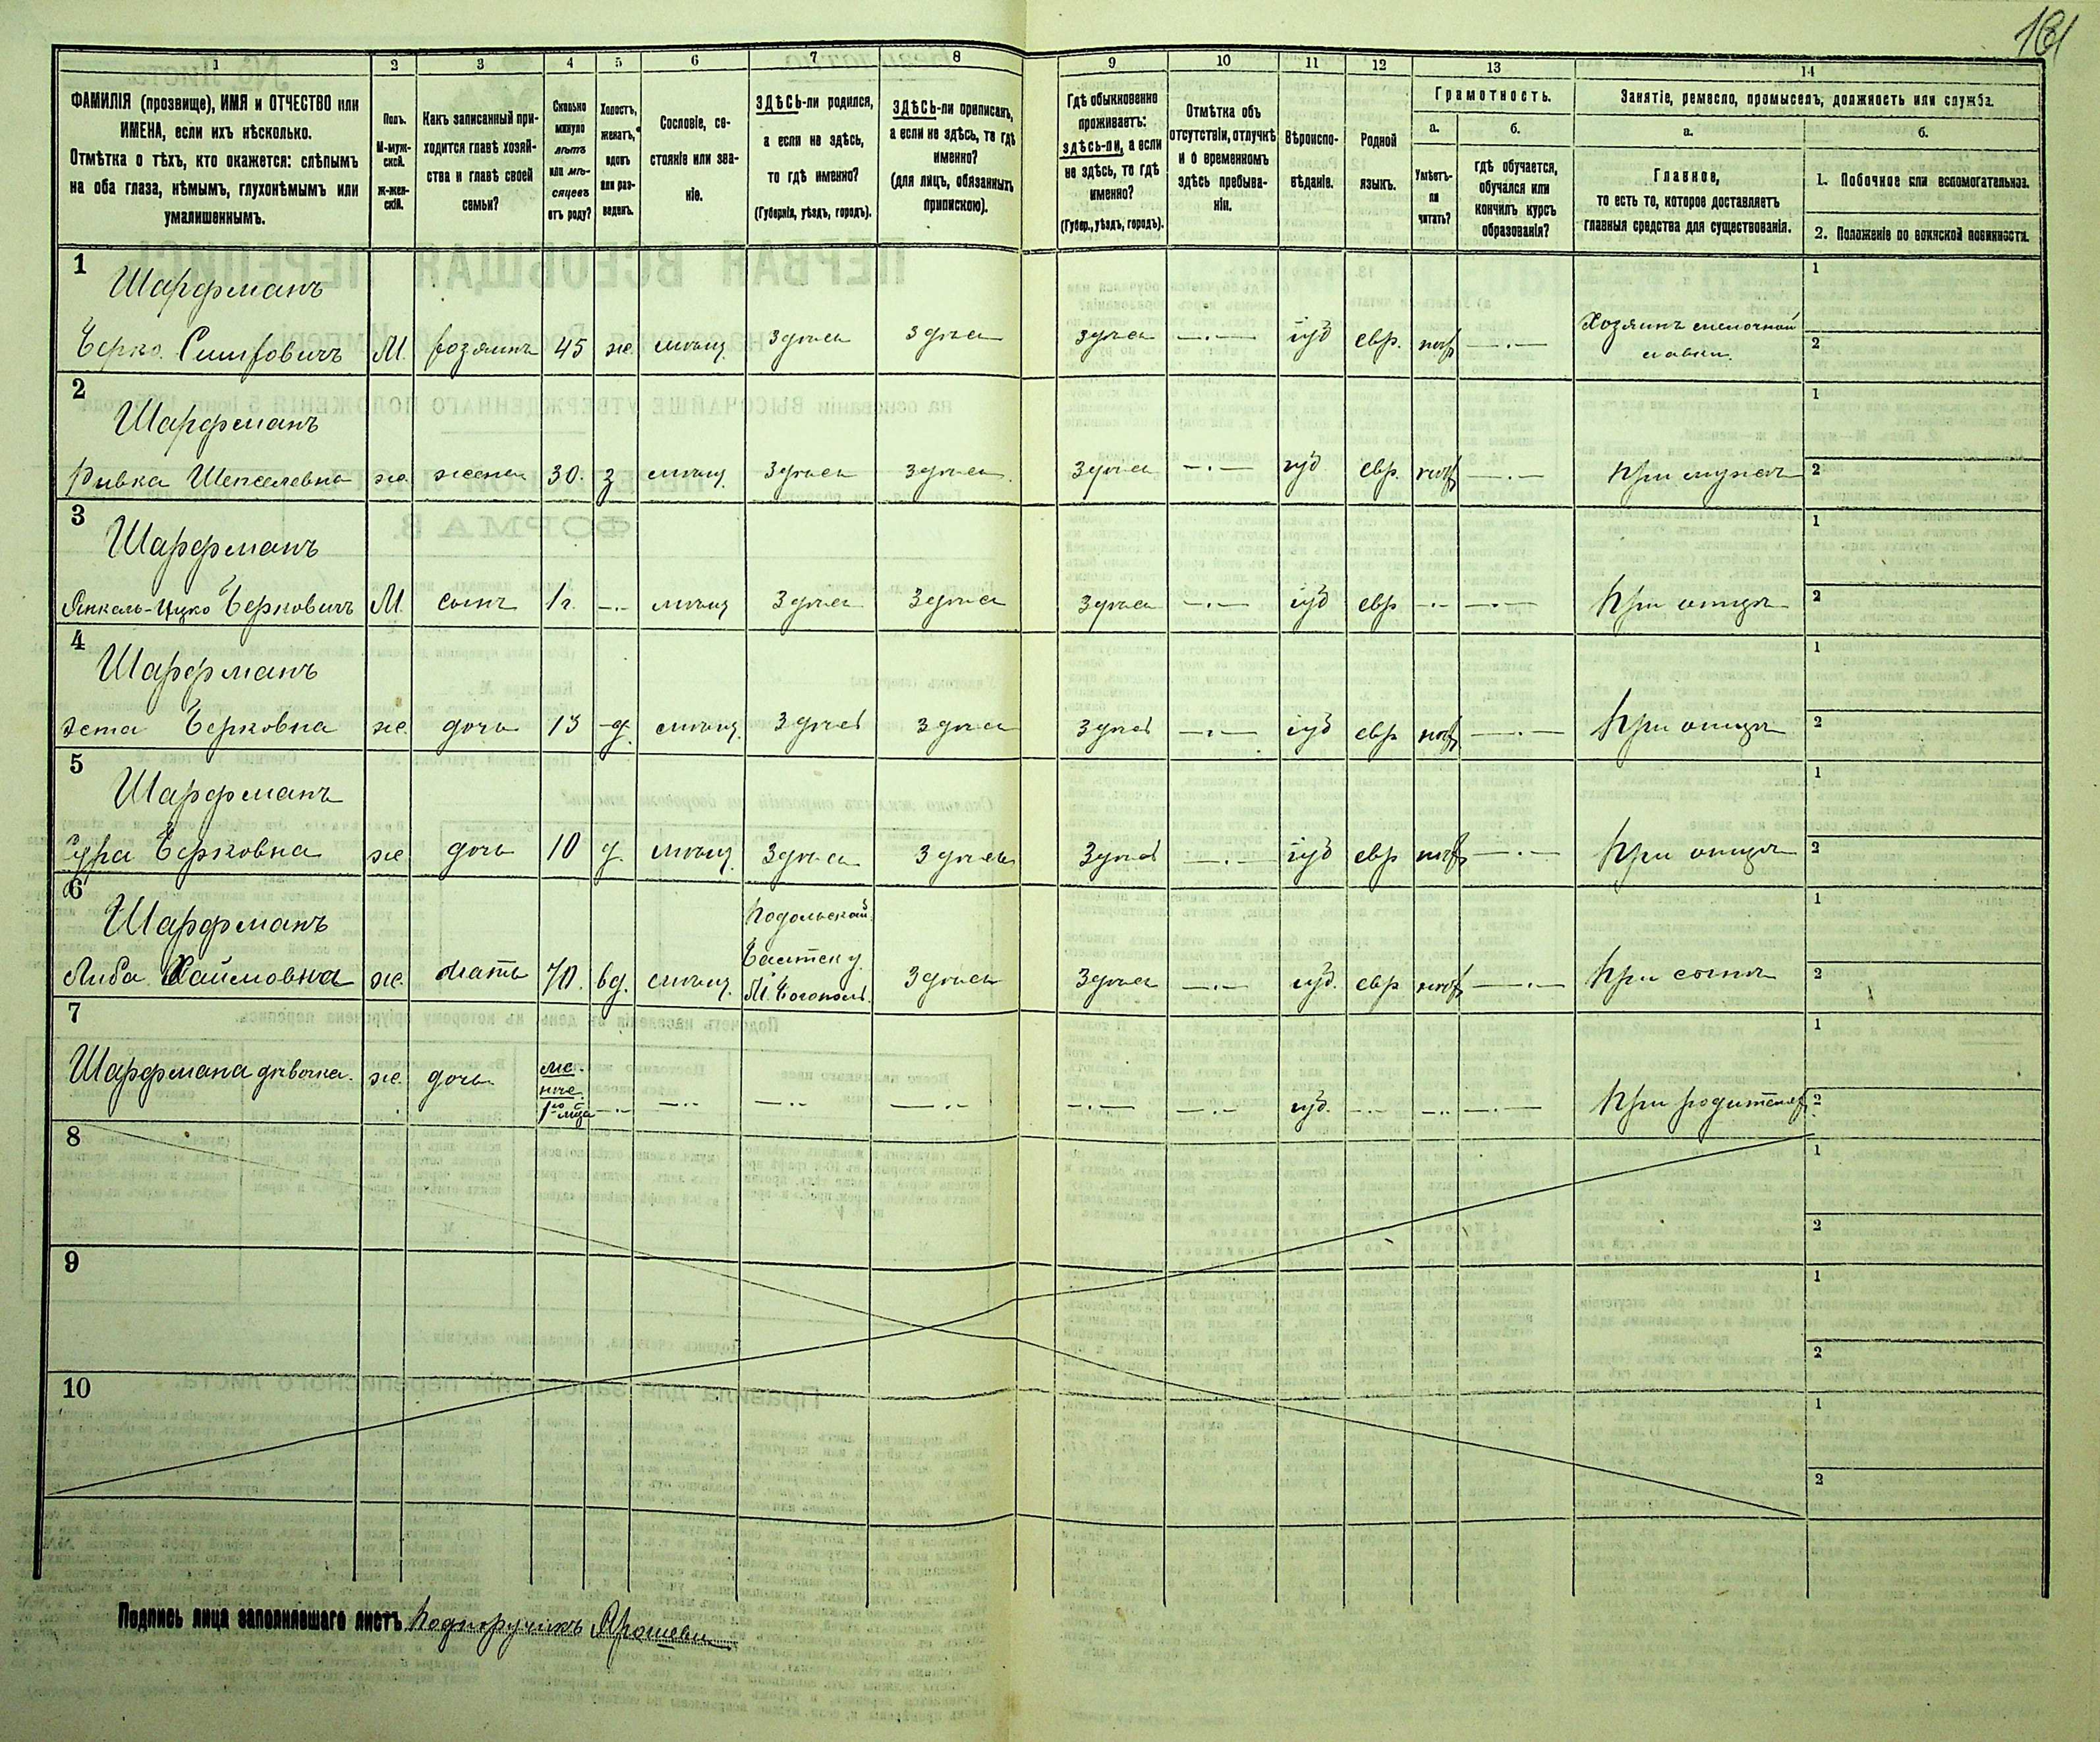 181
1
2
3
4
5
6
7
8
9
10
11
12
13
14
ФАМИЛІЯ (прозвище), ИМЯ и ОТЧЕСТВО или
ИМЕНА, если ихъ нѣсколько.
Отмѣтка о тѣхъ, кто окажется: слѣпымъ
на оба глаза, нѣмымъ, глухонѣмымъ или
умалишеннымъ.
Полъ.
М-муж-
ской.
Ж-жен-
скій.
Какъ записанный при-
ходится главѣ хозяй-
ства и главѣ своей
семьи?
Сколько
минуло
лѣтъ
или мѣ-
сяцевъ
отъ роду?
Холостъ,
женатъ,
вдовъ
или раз-
веденъ.
Сословіе, со-
стояніе или зва-
ніе.
ЗДѢСЬ-ли родился,
а если не здѣсь,
то гдѣ именно?
(Губернія, уѣздъ, городъ).
ЗДѢСЬ-ли приписанъ,
а если не здѣсь, то гдѣ
именно?
(для лицъ, обязанныхъ
припискою).
Гдѣ обыкновенно
проживаетъ:
здѣсь-ли, а если
не здѣсь, то гдѣ
именно?
(Губер., уѣздъ, городъ).
Отмѣтка объ
отсутствіи, отлучкѣ
и о временномъ
здѣсь пребыва-
ніи.
Вѣроиспо-
вѣданіе.
Родной
языкъ.
Грамотность.
а.
Умѣетъ-
ли
читать?
б.
гдѣ обучается,
обучался или
кончилъ курсъ
образованія?
Занятіе, ремесло, промыселъ, должность или служба.
а.
Главное,
то есть то, которое доставляетъ
главныя средства для существованія.
б.
1. Побочное или вспомогательное.
2. Положеніе по воинской повинности.
1
Шарфманъ
Берко М. хозяинъ 45 ж. мѣщ. здѣсь здѣсь здѣсь іуд евр. Хозяинъ мелочной
лавки.
1
2
2
Шарфманъ
Ривка Шепселевна ж. жена 30. з мѣщ. здѣсь здѣсь здѣсь іуд евр. при мужѣ
1
2
3
Шарфманъ
Янкель-Ицко Берковичъ М. сынъ 1 г. мѣщ здѣсь здѣсь здѣсь іуд евр при отцѣ
1
2
4
Шарфманъ
Эста Берковна ж. дочь 13 д. мѣщ. здѣсь здѣсь здѣсь іуд евр при отцѣ
1
2
5
Шарфманъ
Сура Берковна ж дочь 10 д. мѣщ. здѣсь здѣсь здѣсь іуд евр при отцѣ
1
2
6
Шарфманъ
Либа Хаимовна ж. мать 70. вд. мѣщ. Подольской
Балтск у.
М. Богополь. здѣсь здѣсь іуд. евр при сынѣ
1
2
7
Шарфмана дѣвочка. ж. дочь ме-
нѣе
1го мѣс іуд. при родителях
1
2
8
1
2
9
1
2
10
1
2
Подпись лица заполнявшаго листъ Подпоручикъ